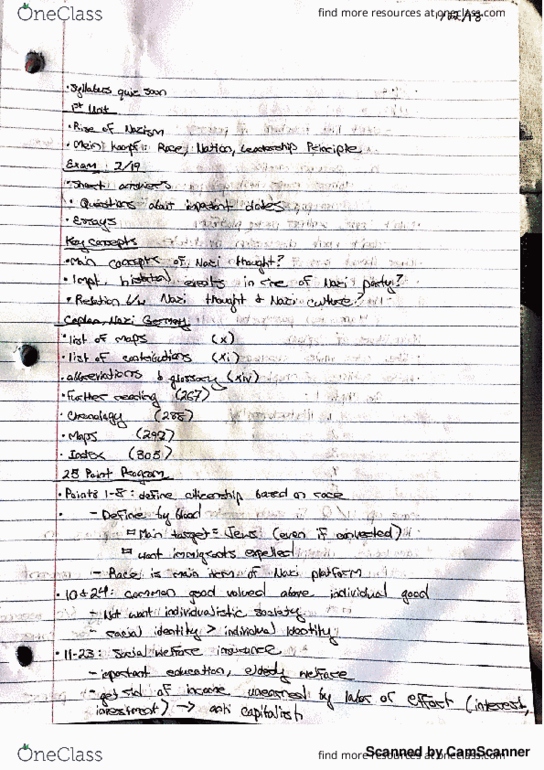 OneClass
find more resources at oneclass.com
• Syllabus quiz soon
1st Unit
• Rise of Nazism
• Mein Kampf: Race, Nation, Leadership Principle
Exam: 2/19
• Short answers
• Questions about important dates
• Essays
Key concepts
• Main concepts of Nazi thought?
• Impt. historical events in rise of Nazi party?
• Relation b/w Nazi thought & Nazi culture?
Caplan, Nazi Germany
• list of maps (x)
• list of contributions (xi)
• abbreviations & glossary (xiv)
• Further reading (267)
• Chronology (288)
• Maps (292)
• Index (305)
25 Point Program
• Points 1-8: define citizenship based on race
- Define by blood
Main target = Jews (even if converted)
want immigrants expelled
- Race is main item of Nazi platform
• 10 & 24: common good valued above individual good
- Not want individualistic society
- racial identity > individual identity
• 11-23: Social welfare insurance
- important education, elderly welfare
- get rid of income unearned by labor or effort (interest,
investment) → anti capitalist
OneClass
find more resources at oneclass.com
Scanned by CamScanner